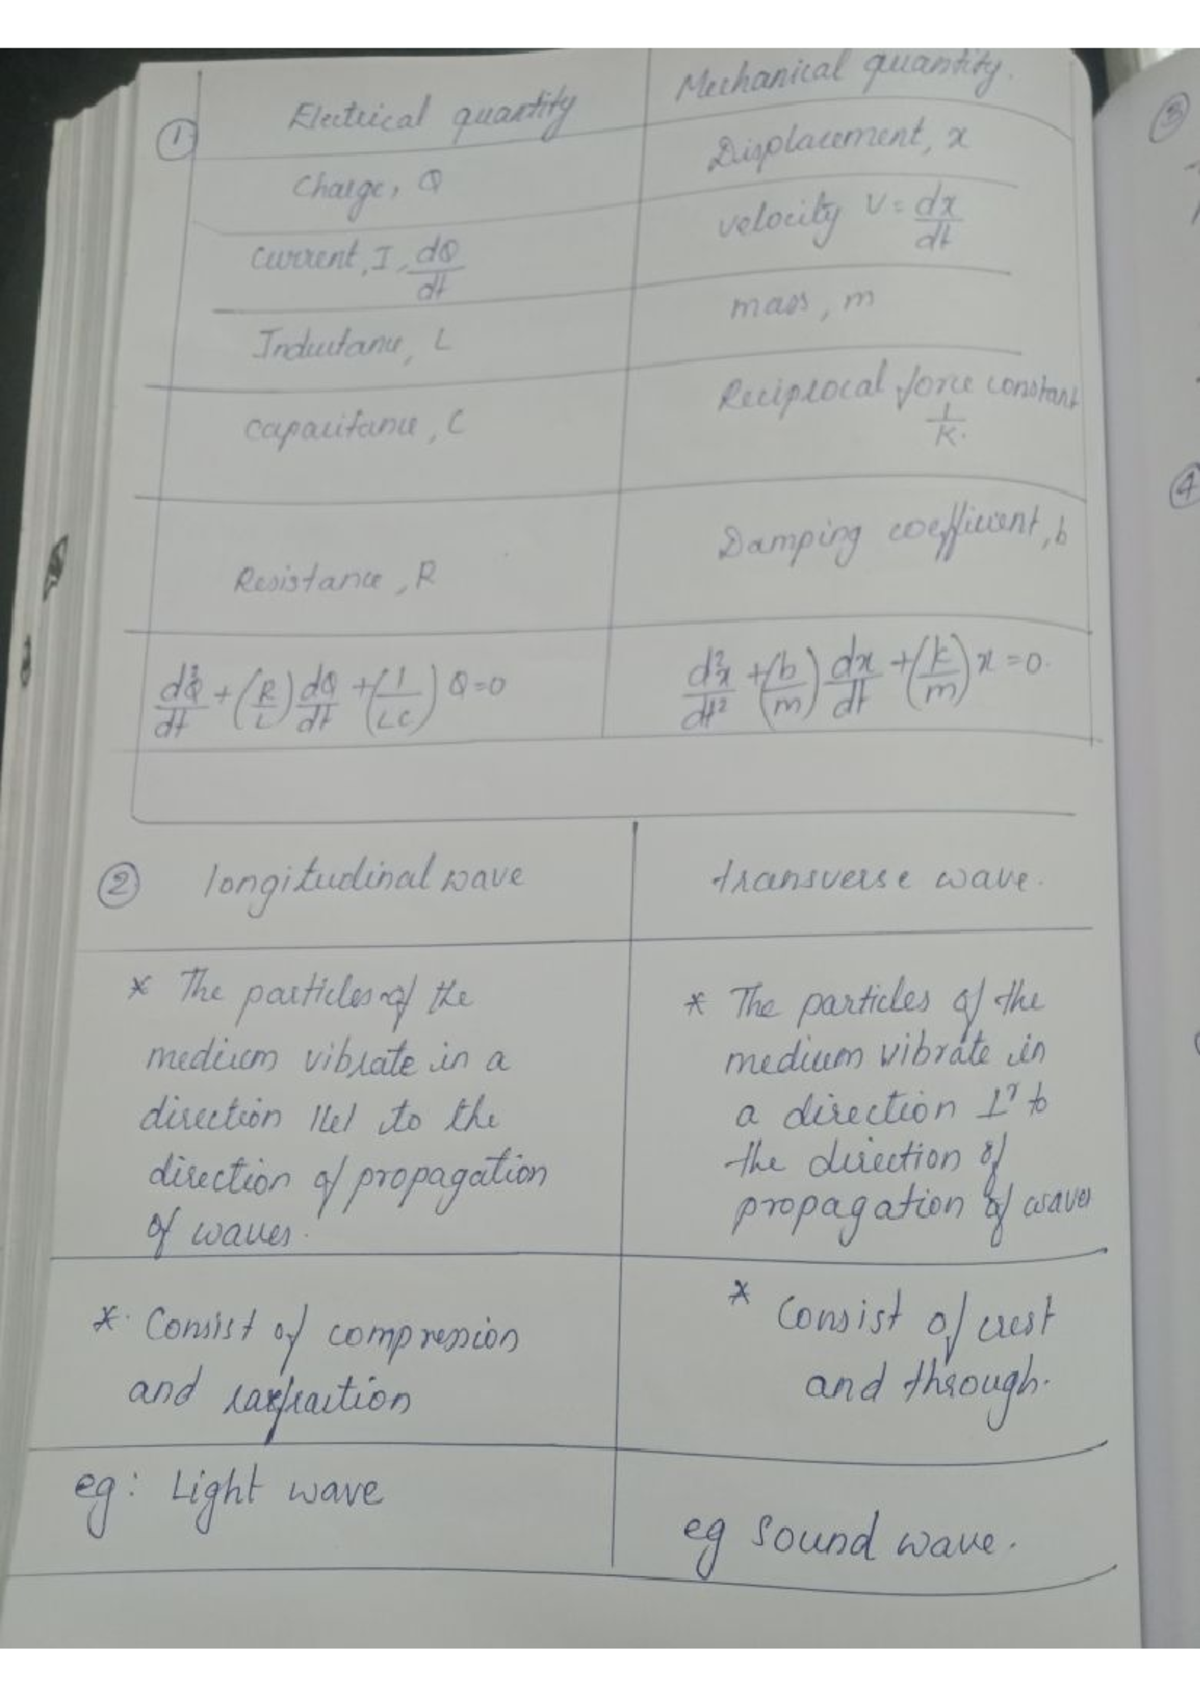 ① Electrical quantity | Mechanical quantity.
Charge, Q | Displacement, x
Current, I, dQ/dt | velocity V = dx/dt
Inductance, L | mass, m
Capacitance, C | Reciprocal force constant 1/K.
Resistance, R | Damping coefficient, b
d²Q/dt + (R/L) dQ/dt + (1/LC) Q = 0 | d²x/dt² + (b/m) dx/dt + (k/m) x = 0.
② longitudinal wave | transverse wave.
* The particles of the
medium vibrate in a
direction llel to the
direction of propagation
of waves.
* The particles of the
medium vibrate in
a direction ⊥r to
the direction of
propagation of waves
* Consist of compression
and rarfraction
* Consist of crest
and through.
eg: Light wave
eg Sound wave.
③
④